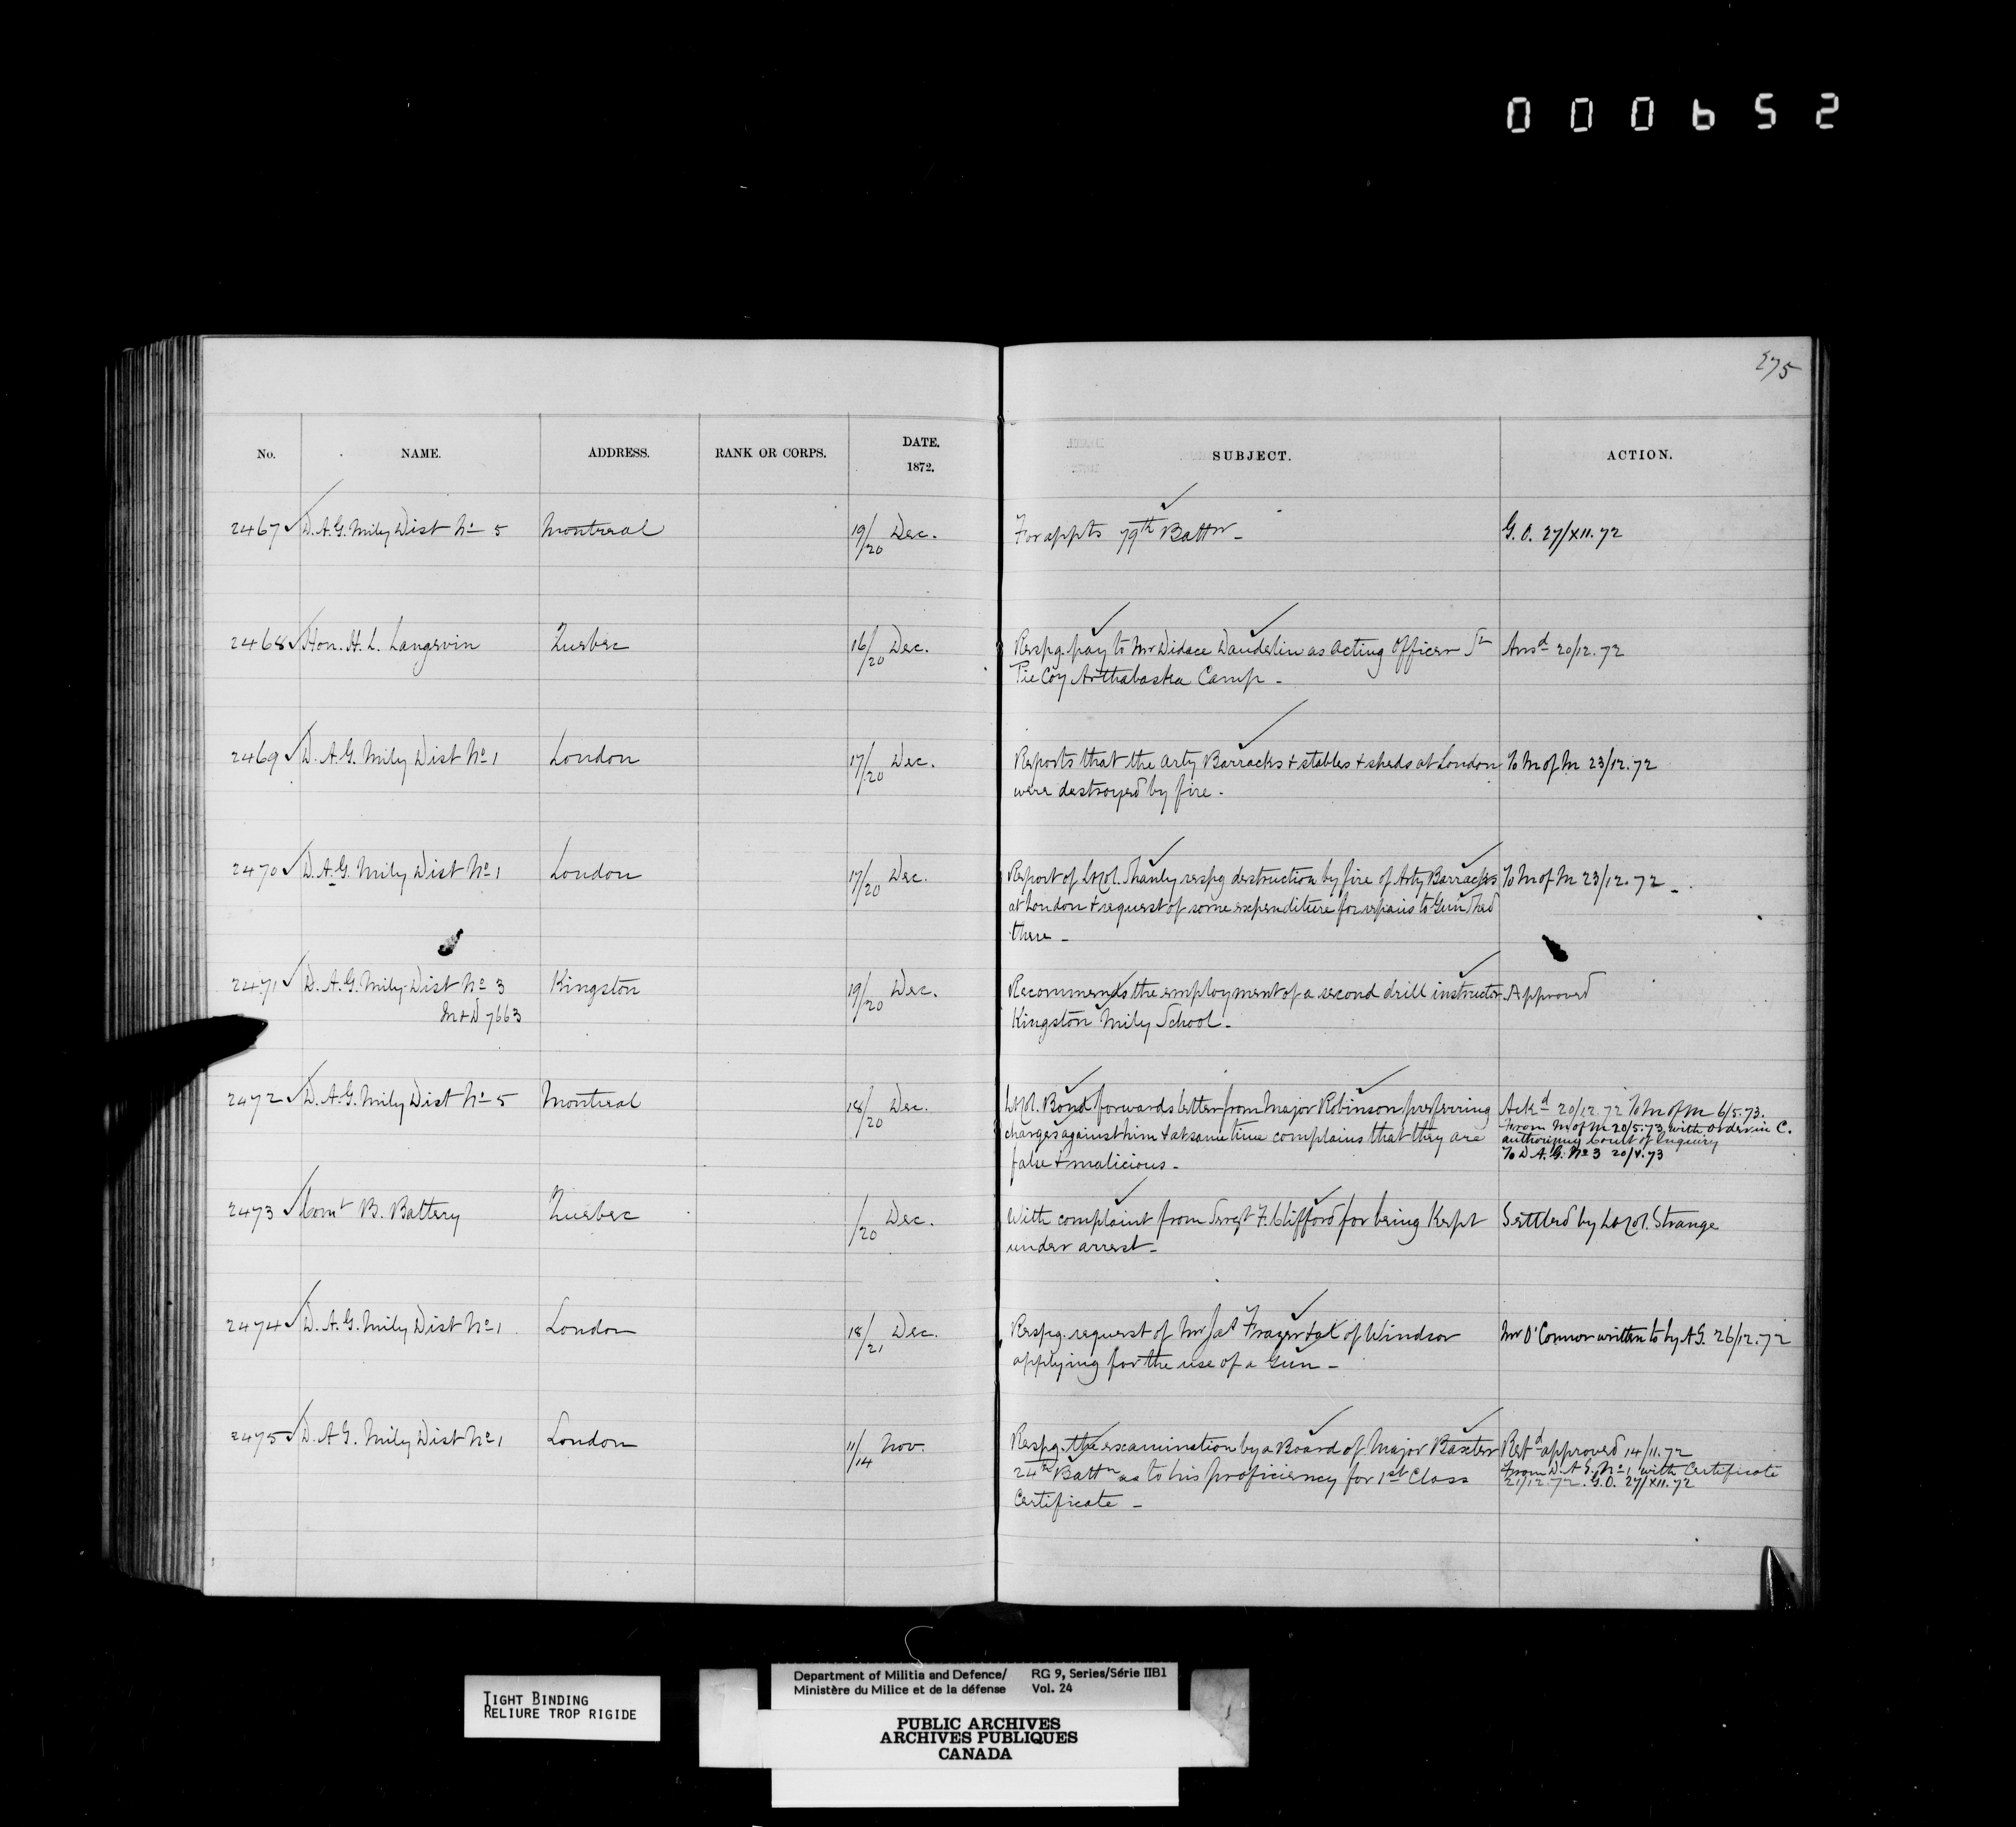 000652
275
No. NAME. ADDRESS. RANK OR CORPS. DATE. 1872. SUBJECT. ACTION.
2467 D.A.G. Mily Dist No 5 Montreal 19/20 Dec. For appts 79th Battn - G.O. 27/XII.72
2468 Hon. H. L. Langevin Quebec 16/20 Dec. Respg. pay to Mr Didace Dauderlin as acting Officer St Ansd 20/12.72
Pie Coy Arthabaska Camp -
2469 D.A.G. Mily Dist No 1 London 17/20 Dec. Reports that the Arty Barracks + stables + sheds at London To M of M 23/12.72
were destroyed by fire -
2470 D.A.G. Mily Dist No 1 London 17/20 Dec. Report of Lt Col. Shanly respg destruction by fire of Arty Barracks To M of M 23/12.72 -
at London + request of some expenditure for repairs to Gun Shed
there -
2471 D.A.G. Mily Dist No 3 Kingston 19/20 Dec. Recommends the employment of a second drill instructor Approved
M+D 7663 Kingston Mily School -
2472 D.A.G. Mily Dist No 5 Montreal 18/20 Dec. Lt Col. Bond forwards letter from Major Robinson preferring Ackd 20/12.72 To M of M 6/5.73.
From M of M 20/5.73 with Order in C.
charges against him + at same time complains that they are authorizing Court of Inquiry
false + malicious - To D.A.G. No 3 20/V.73
2473 Comt B. Battery Quebec /20 Dec. With complaint from Sergt F. Clifford for being Kept Settled by Lt Col. Strange
under arrest -
2474 D.A.G. Mily Dist No 1 London 18/21 Dec. Respg. request of Mr Jas Frazer + al of Windsor Mr O'Connor written to by AG. 26/12.72
applying for the use of a Gun -
2475 D.A.G. Mily Dist No 1 London 11/14 Nov. Respg. the examination by a Board of Major Baxter Refd approved 14/11.72
24th Battn as to his proficiency for 1st Class From D.A.G. No 1 with Certificate
Certificate - 21/12.72. G.O. 27/XII.72
TIGHT BINDING
RELIURE TROP RIGIDE
Department of Militia and Defence/ RG 9, Series/Série IIB1
Ministère du Milice et de la défense Vol. 24
PUBLIC ARCHIVES
ARCHIVES PUBLIQUES
CANADA